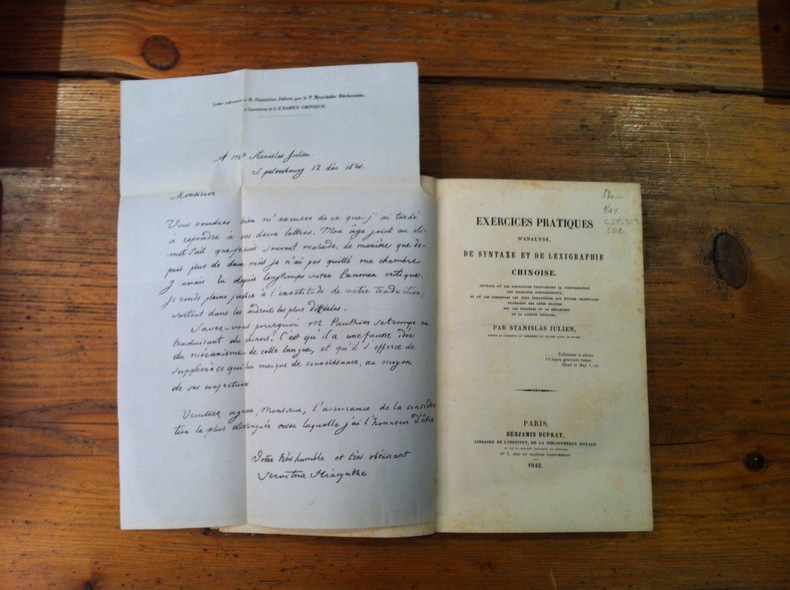 Lettre adressée à M. Stanislas Julien, par le P. Hyacinthe Bitchourin,
à l'occasion de L'EXAMEN CRITIQUE.
A Mr Stanislas Julien.
St petersbourg 12 déc 1841.
Monsieur
Vous voudrez bien m'excuser de ce que j'ai tardé
à repondre à vos deux lettres. Mon âge joint au cli-
mat fait que je suis souvent malade, de manière que de-
puis plus de deux mois je n'ai pas quitté ma chambre.
J'avais lu depuis longtemps votre Examen critique.
Je rends pleine justice à l'exactitude de votre traduction,
surtout dans les endroits les plus difficiles.
Savez-vous pourquoi M. Pauthier se trompe en
traduisant du chinois? C'est qu'il a une fausse idée
du mécanisme de cette langue, et qu'il s'efforce de
suppléer à ce qui lui manque de connaissance, au moyen
de ses conjectures
Veuillez agréer, Monsieur, l'assurance de la considéra
tion la plus distinguée avec laquelle j'ai l'honneur d'être
Votre très humble et très obéissant
Serviteur Hiacynthe
EXERCICES PRATIQUES
D'ANALYSE,
DE SYNTAXE ET DE LEXIGRAPHIE
CHINOISE.
OUVRAGE OÙ LES PERSONNES
PAR STANISLAS JULIEN,
PARIS,
BENJAMIN DUPRAT,
LIBRAIRE DE L'INSTITUT, DE LA BIBLIOTHÈQUE ROYALE
N° 7, RUE DU CLOÎTRE SAINT-BENOÎT
1842.